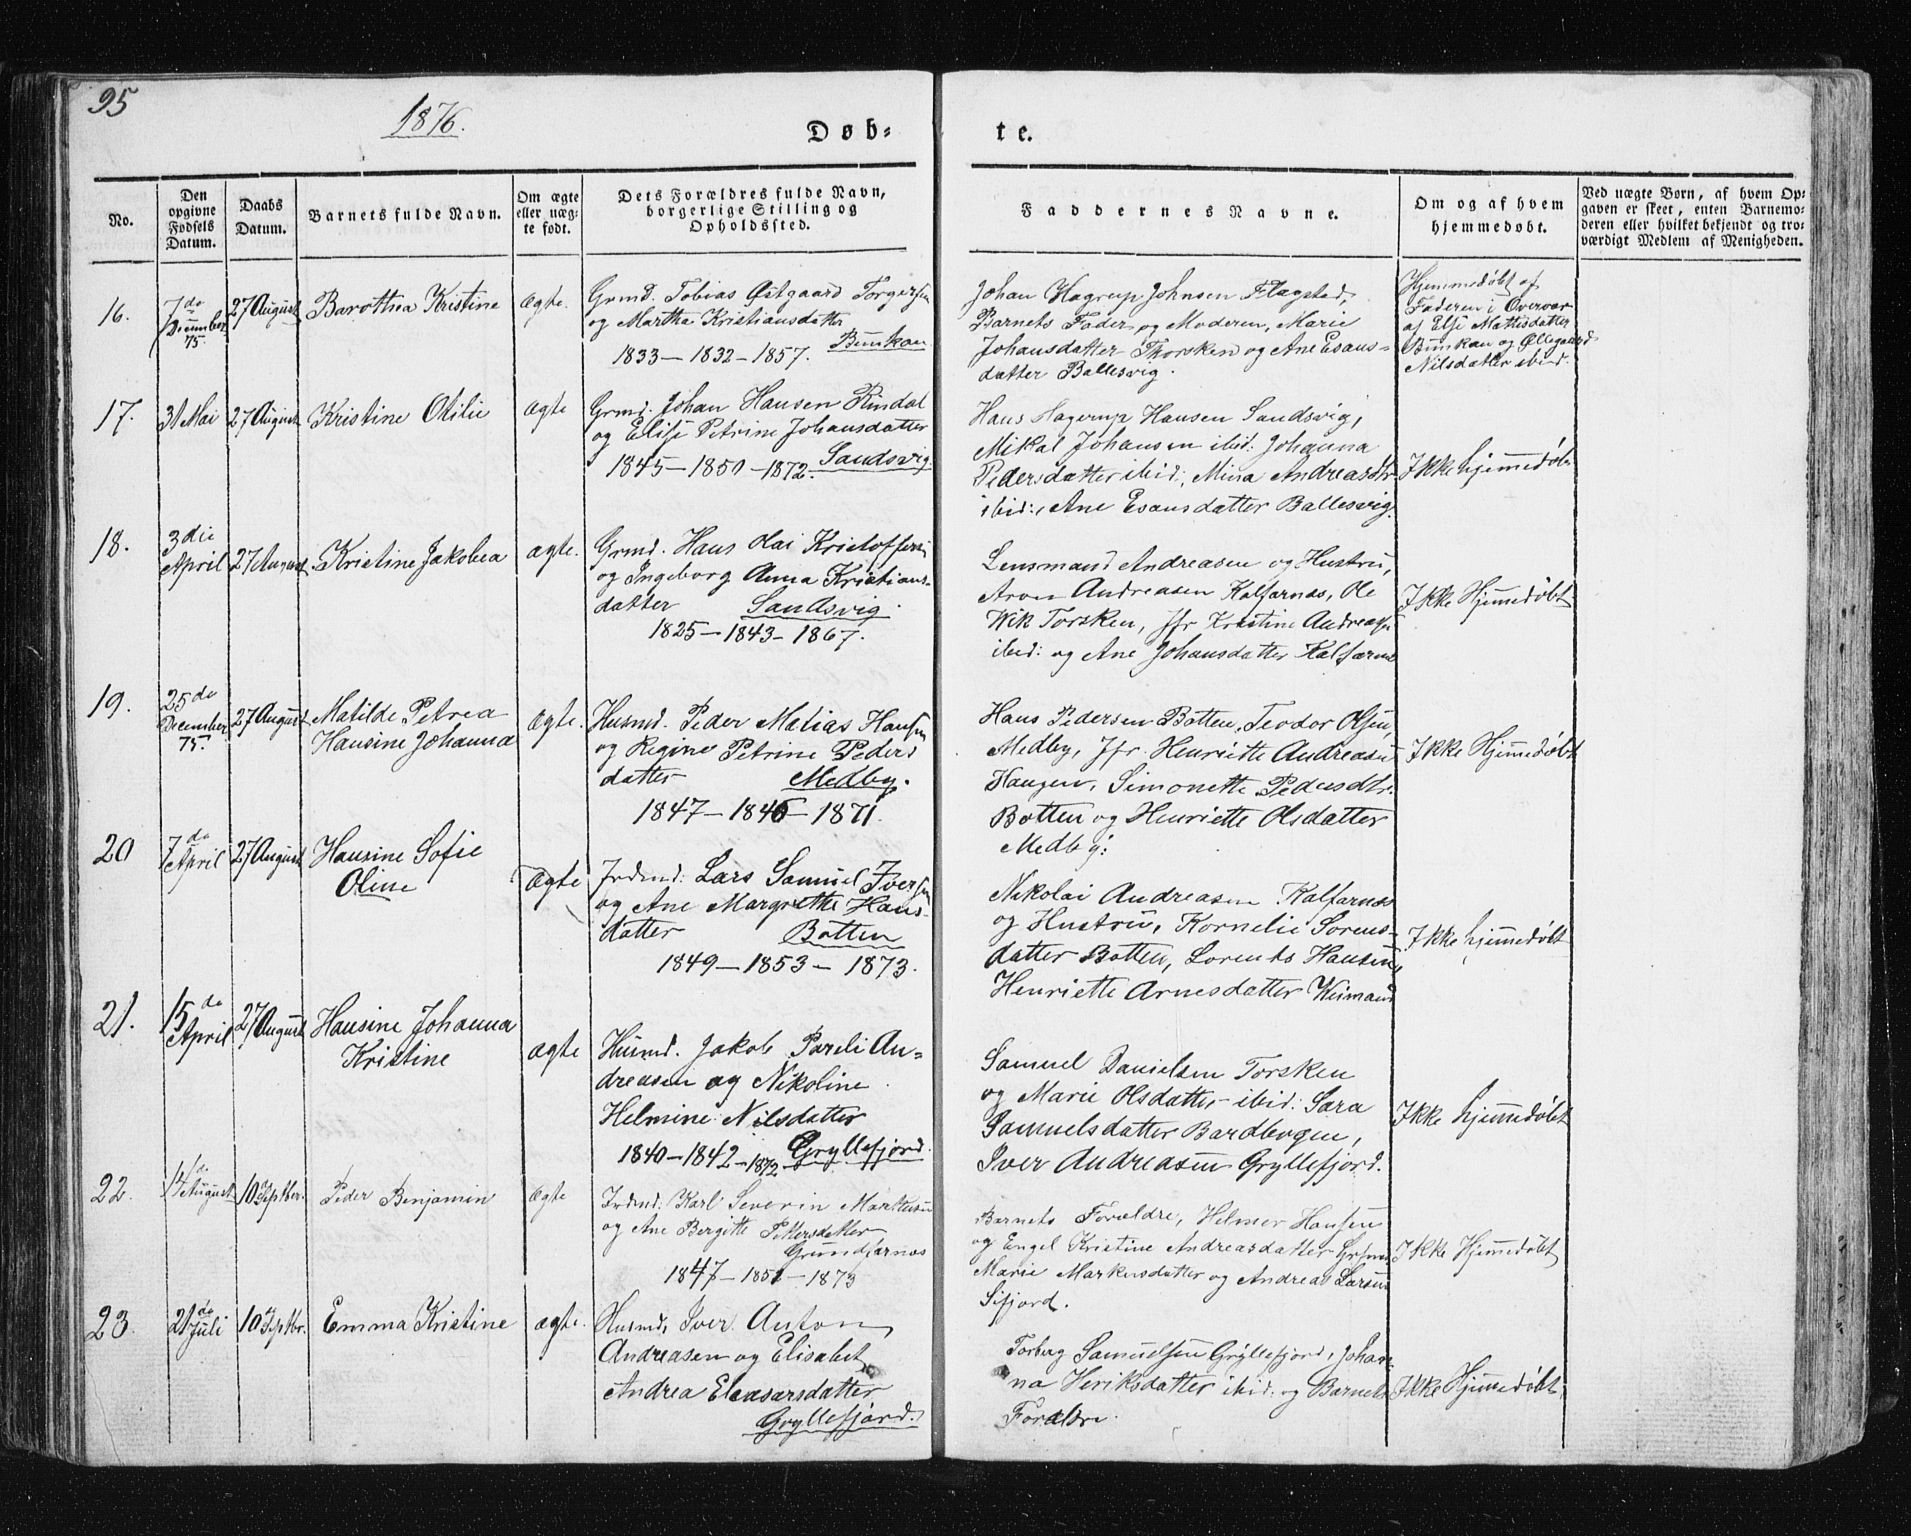 95
1876.
Døb-
te.
No.
Den opgivne Fødsels Datum.
Daabs Datum.
Barnets fulde Navn.
Om ægte eller uægte født.
Dets Forældres fulde Navn, borgerlige Stilling og Opholdssted.
Faddernes Navne.
Om og af hvem hjemmedøbt.
Ved uægte Børn, af hvem Opgaven er skeet, enten Barnemoderen eller hvilket bekjendt og troværdigt Medlem af Menigheden.
16.
7de December 75.
27 August
Barothea Kristine
Ægte.
Grmd. Tobias Østgaard Torgersen
og Martha Kristiansdatter
1833 - 1832 - 1857. Bunkan
Johan Hagrup Johnsen Flagstad,
Barnets Fader og Moderen, Marie
Johansdatter Thorsken og Ane Esaus-
datter Ballesvig.
Hjemmedøbt af
Faderen i Overvær
af Else Mattisdatter
Bunkan og Øllegaard
Nilsdatter ibid.
17.
31 Mai
27 August
Kristine Otilie
Ægte
Grmd. Johan Hansen Rindal
og Elise Petrine Johansdatter
1845 - 1850 - 1872. Sandsvig.
Hans Hagerup Hansen Sandsvig,
Mikal Johansen ibid: Johanna
Pedersdatter ibid:, Mina Andreasdtr
ibid:, Ane Esausdatter Ballesvig.
Ikke hjemmedøbt
18.
3die April
27 August
Kristine Jakobea
Ægte.
Grmd. Hans Olai Kristoffersen
og Ingeborg Anna Kristians-
datter Sandsvig.
1825 - 1843 - 1867.
Lensmand Andreasen og Hustru,
Andreasen Kalfarnes, Ole
Wik Torsken, Jfr Kristine Andreasen
ibid: og Ane Johansdatter Kalfarnes
Ikke Hjemmedøbt
19.
25de December 75.
27 August
Matilde Petrea
Hansine Johanna
Ægte.
Husmd. Peder Matias Hansen
og Regine Petrine Peders
datter Medby.
1847 - 1846 - 1871.
Hans Pedersen Botten, Teodor Olsen,
Medby, Jfr. Henriette Andreasen
Haugen, Simonette Pedersdtr.
Botten og Henriette Olsdatter
Medby:
Ikke Hjemmedøbt
20
7de April
27 August
Hansine Sofie
Oline
Ægte
Indmd: Lars Samuel Iversen
og Ane Margrethe Hans-
datter Botten
1849 - 1853 - 1873.
Nikolai Andreasen Kalfarnes
og Hustru, Kornelie Sorens-
datter Botten, Lorents Hansen,
Henriette Arnesdatter
Ikke hjemmedøbt
21.
15de April
27 August
Hansine Johanna
Kristine
Ægte
Husmd. Jakob Pareli An-
dreasen og Nikoline
Helmine Nilsdatter
1840 - 1842 - 1872 Gryllefjord.
Samuel Danielsen Torsken
og Marie Olsdatter ibid: Sara
Samuelsdatter Bardbergen,
Iver Andreasen Gryllefjord.
Ikke hjemmedøbt
22.
14de August
10 Septber.
Peder Benjamin
Ægte
Indmd: Karl Severin Markusen
og Ane Bergitte Pettersdatter
Grundfarnæs
1847 - 1851 - 1873
Barnets Forældre, Helmer Hansen
og Engel Kristine Andreasdatter
Marie Markusdatter og Andreas Larsen
Sifjord.
Ikke Hjemmedøbt
23.
21de Juli
10 Septbr.
Emma Kristine
ægte.
Husmd. Iver Anton
Andreasen og Elisabet
Andrea Eleasarsdatter
Gryllefjord.
Torberg Samuelsen Gryllefjord, Johan-
na Heriksdatter ibid: og Barnets
Forældre.
Ikke Hjemmedøbt